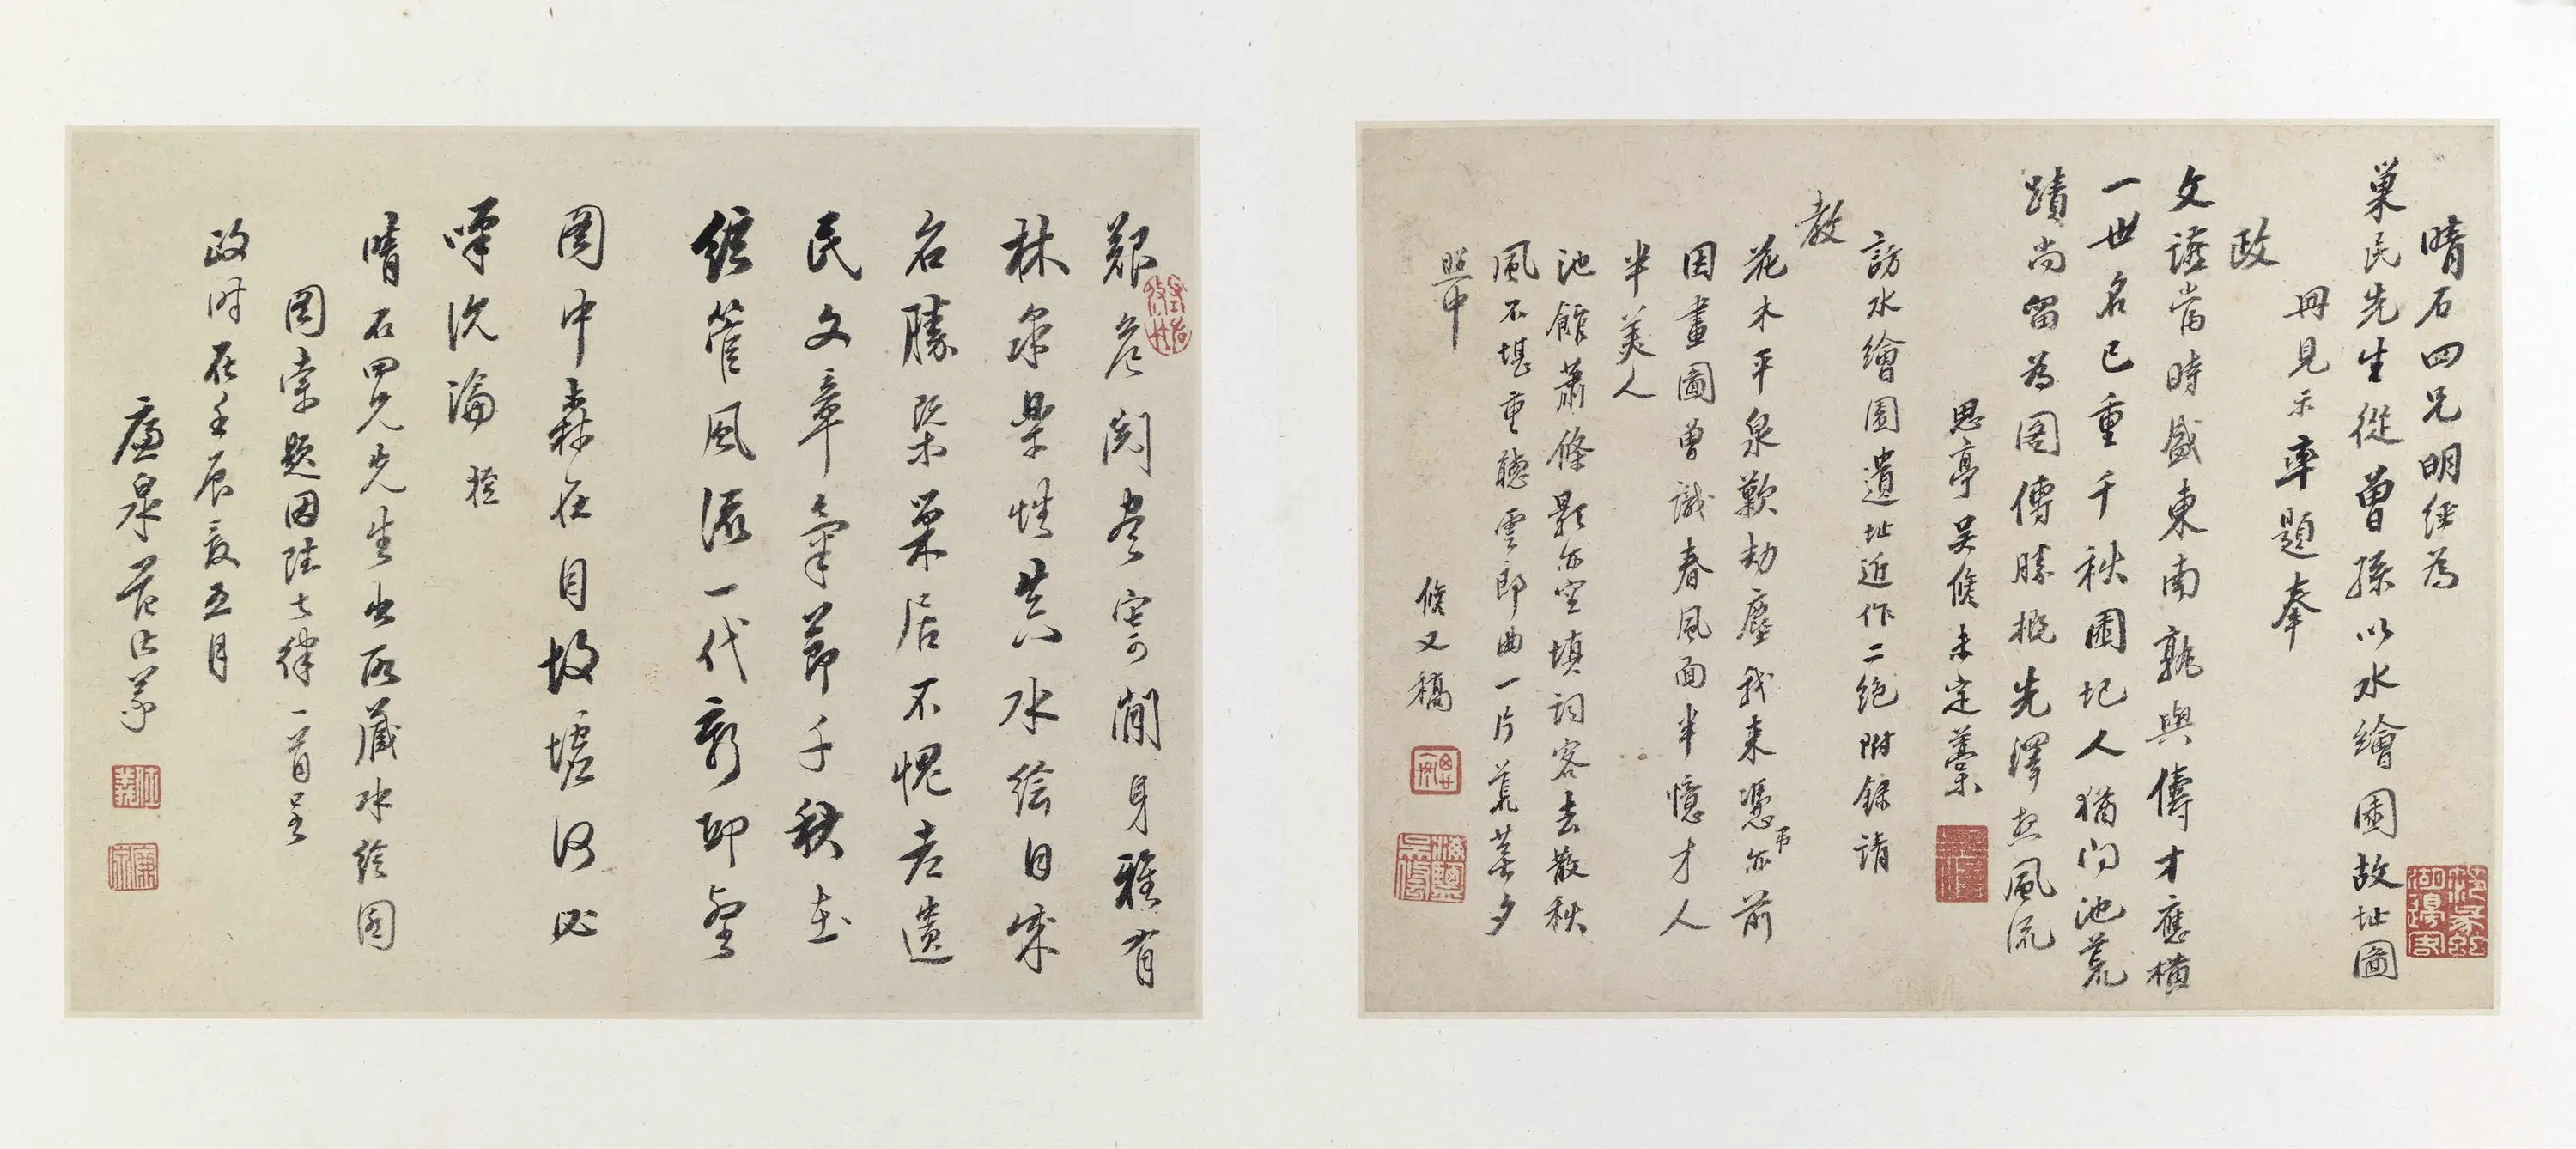 晴石四兄明經為
巢民先生從曾孫以水繪園故址圖
冊見示率題奉
政
文讌當時盛東南孰與儔才應橫
一世名已重千秋園圮人猶問池荒
蹟尚留為圖傳勝概先澤憖風流
思亭吳脩未定藁
訪水繪園遺址近作二絕附錄請
教
花木平泉歎劫塵我來憑弔亦前
因畫圖曾識春風面半憶才人
半美人
池館蕭條影亦空填詞客去散秋
風不堪重聽雲郎曲一片荒蕪夕
照中
脩又稿
艱危閱盡寄閒身雅有
林泉樂性真水绘自成
名勝築巢居不愧老遺
民文章氣節千秋在
絃管風流一代新即望
圖中森在目故墟何必
嘆沉淪
晴石四兄先生出所藏水绘園
圖索題因陸七律一首呈
政时在壬辰夏五月
廉泉范仕義